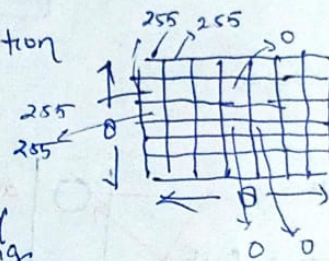 tion
255 255
0
255
0
255
0
0 0